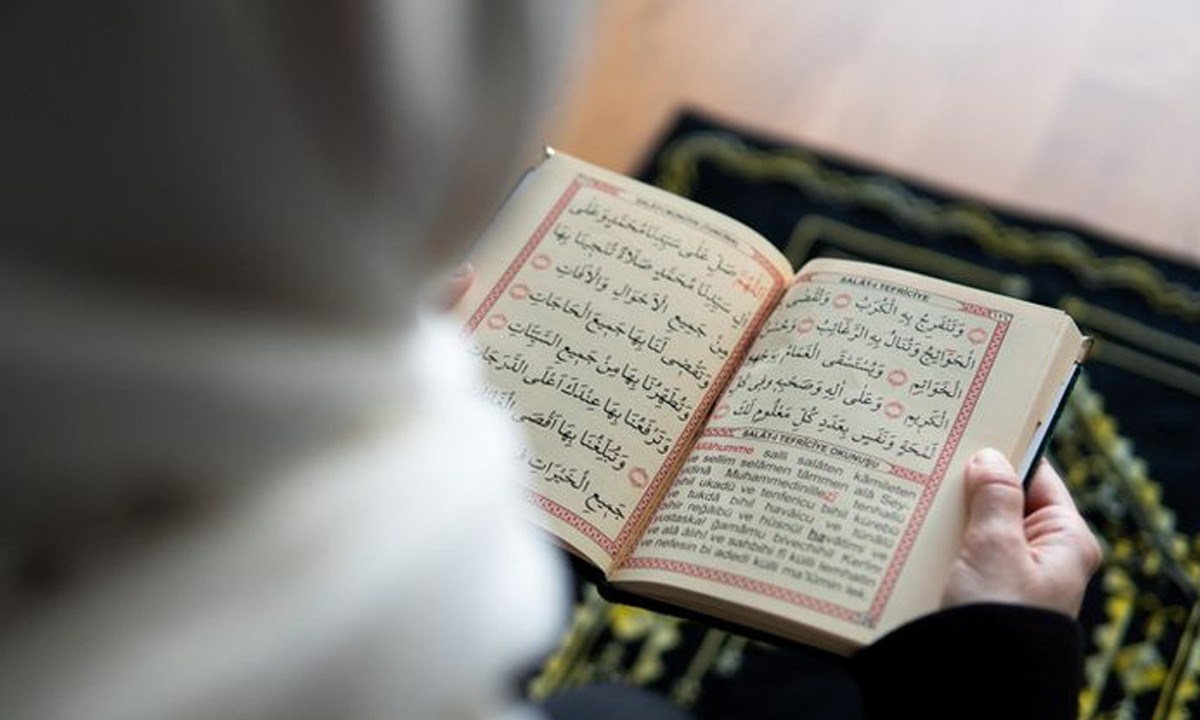 اللهم صَلِّ عَلَى سَيِّدِنَا مُحَمَّدٍ وَعَلَى
اٰلِ سَيِّدِنَا مُحَمَّدٍ صَلَاةً تُنْجِينَا بِهَا
مِنْ جَمِيعِ الْاَحْوَالِ وَالْاٰفَاتِ
وَتَقْضِى لَنَا بِهَا جَمِيعَ الْحَاجَاتِ
وَتُطَهِّرُنَا بِهَا مِنْ جَمِيعِ السَّيِّئَاتِ
وَتَرْفَعُنَا بِهَا عِنْدَكَ اَعْلَى الدَّرَجَاتِ
وَتُبَلِّغُنَا بِهَا اَقْصَى
جَمِيعِ الْخَيْرَاتِ
SALÂT-I TEFRİCİYE
وَتَنْفَرِجُ بِهِ الْكُرَبُ وَتُقْضَى
الْحَوَائِجُ وَتُنَالُ بِهِ الرَّغَائِبُ وَحُسْنُ
الْخَوَاتِمِ وَيُسْتَسْقَى الْغَمَامُ بِوَجْهِهِ
الْكَرِيمِ وَعَلَى اٰلِهِ وَصَحْبِهِ فِى كُلِّ
لَمْحَةٍ وَنَفَسٍ بِعَدَدِ كُلِّ مَعْلُومٍ لَكَ
SALÂT-I TEFRİCİYE OKUNUŞU
salli salâten kâmileten
ve sellim selâmen tâmmen alâ Sey-
Muhammedinillezi tenhallü
bihil ukadü ve tenfericu bihil kürebü
ve tukdâ bihil havâicu ve tünâlü
bihir reğâibü ve hüsnül havâtimi ve
yustaskal ğamâmu bivechihil Kerîm
ve alâ âlihî ve sahbihi fî külli lemhatin
ve nefesin bi adedi külli ma'lûmin lek.